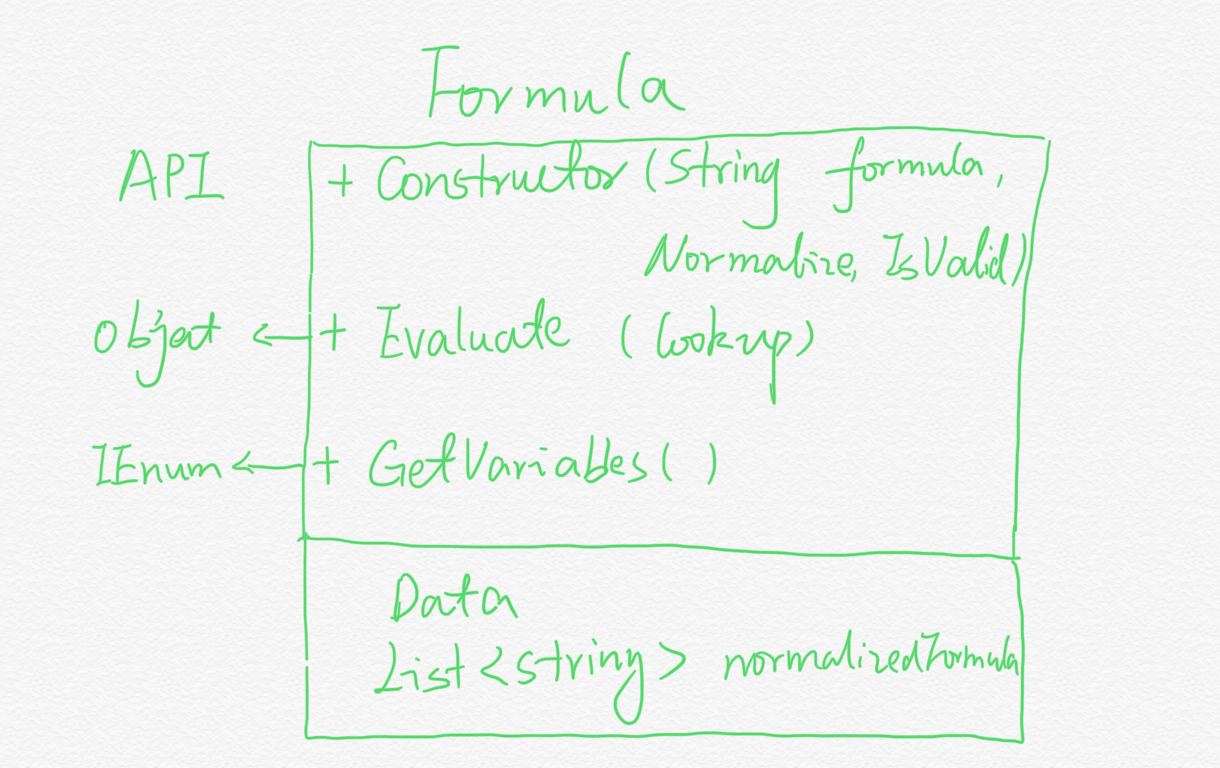 Formula
API + Constructor (String formula,
Normalize, IsValid)
Object ← + Evaluate (Lookup)
IEnum ← + GetVariables ( )
Data
List <string> normalizedFormula